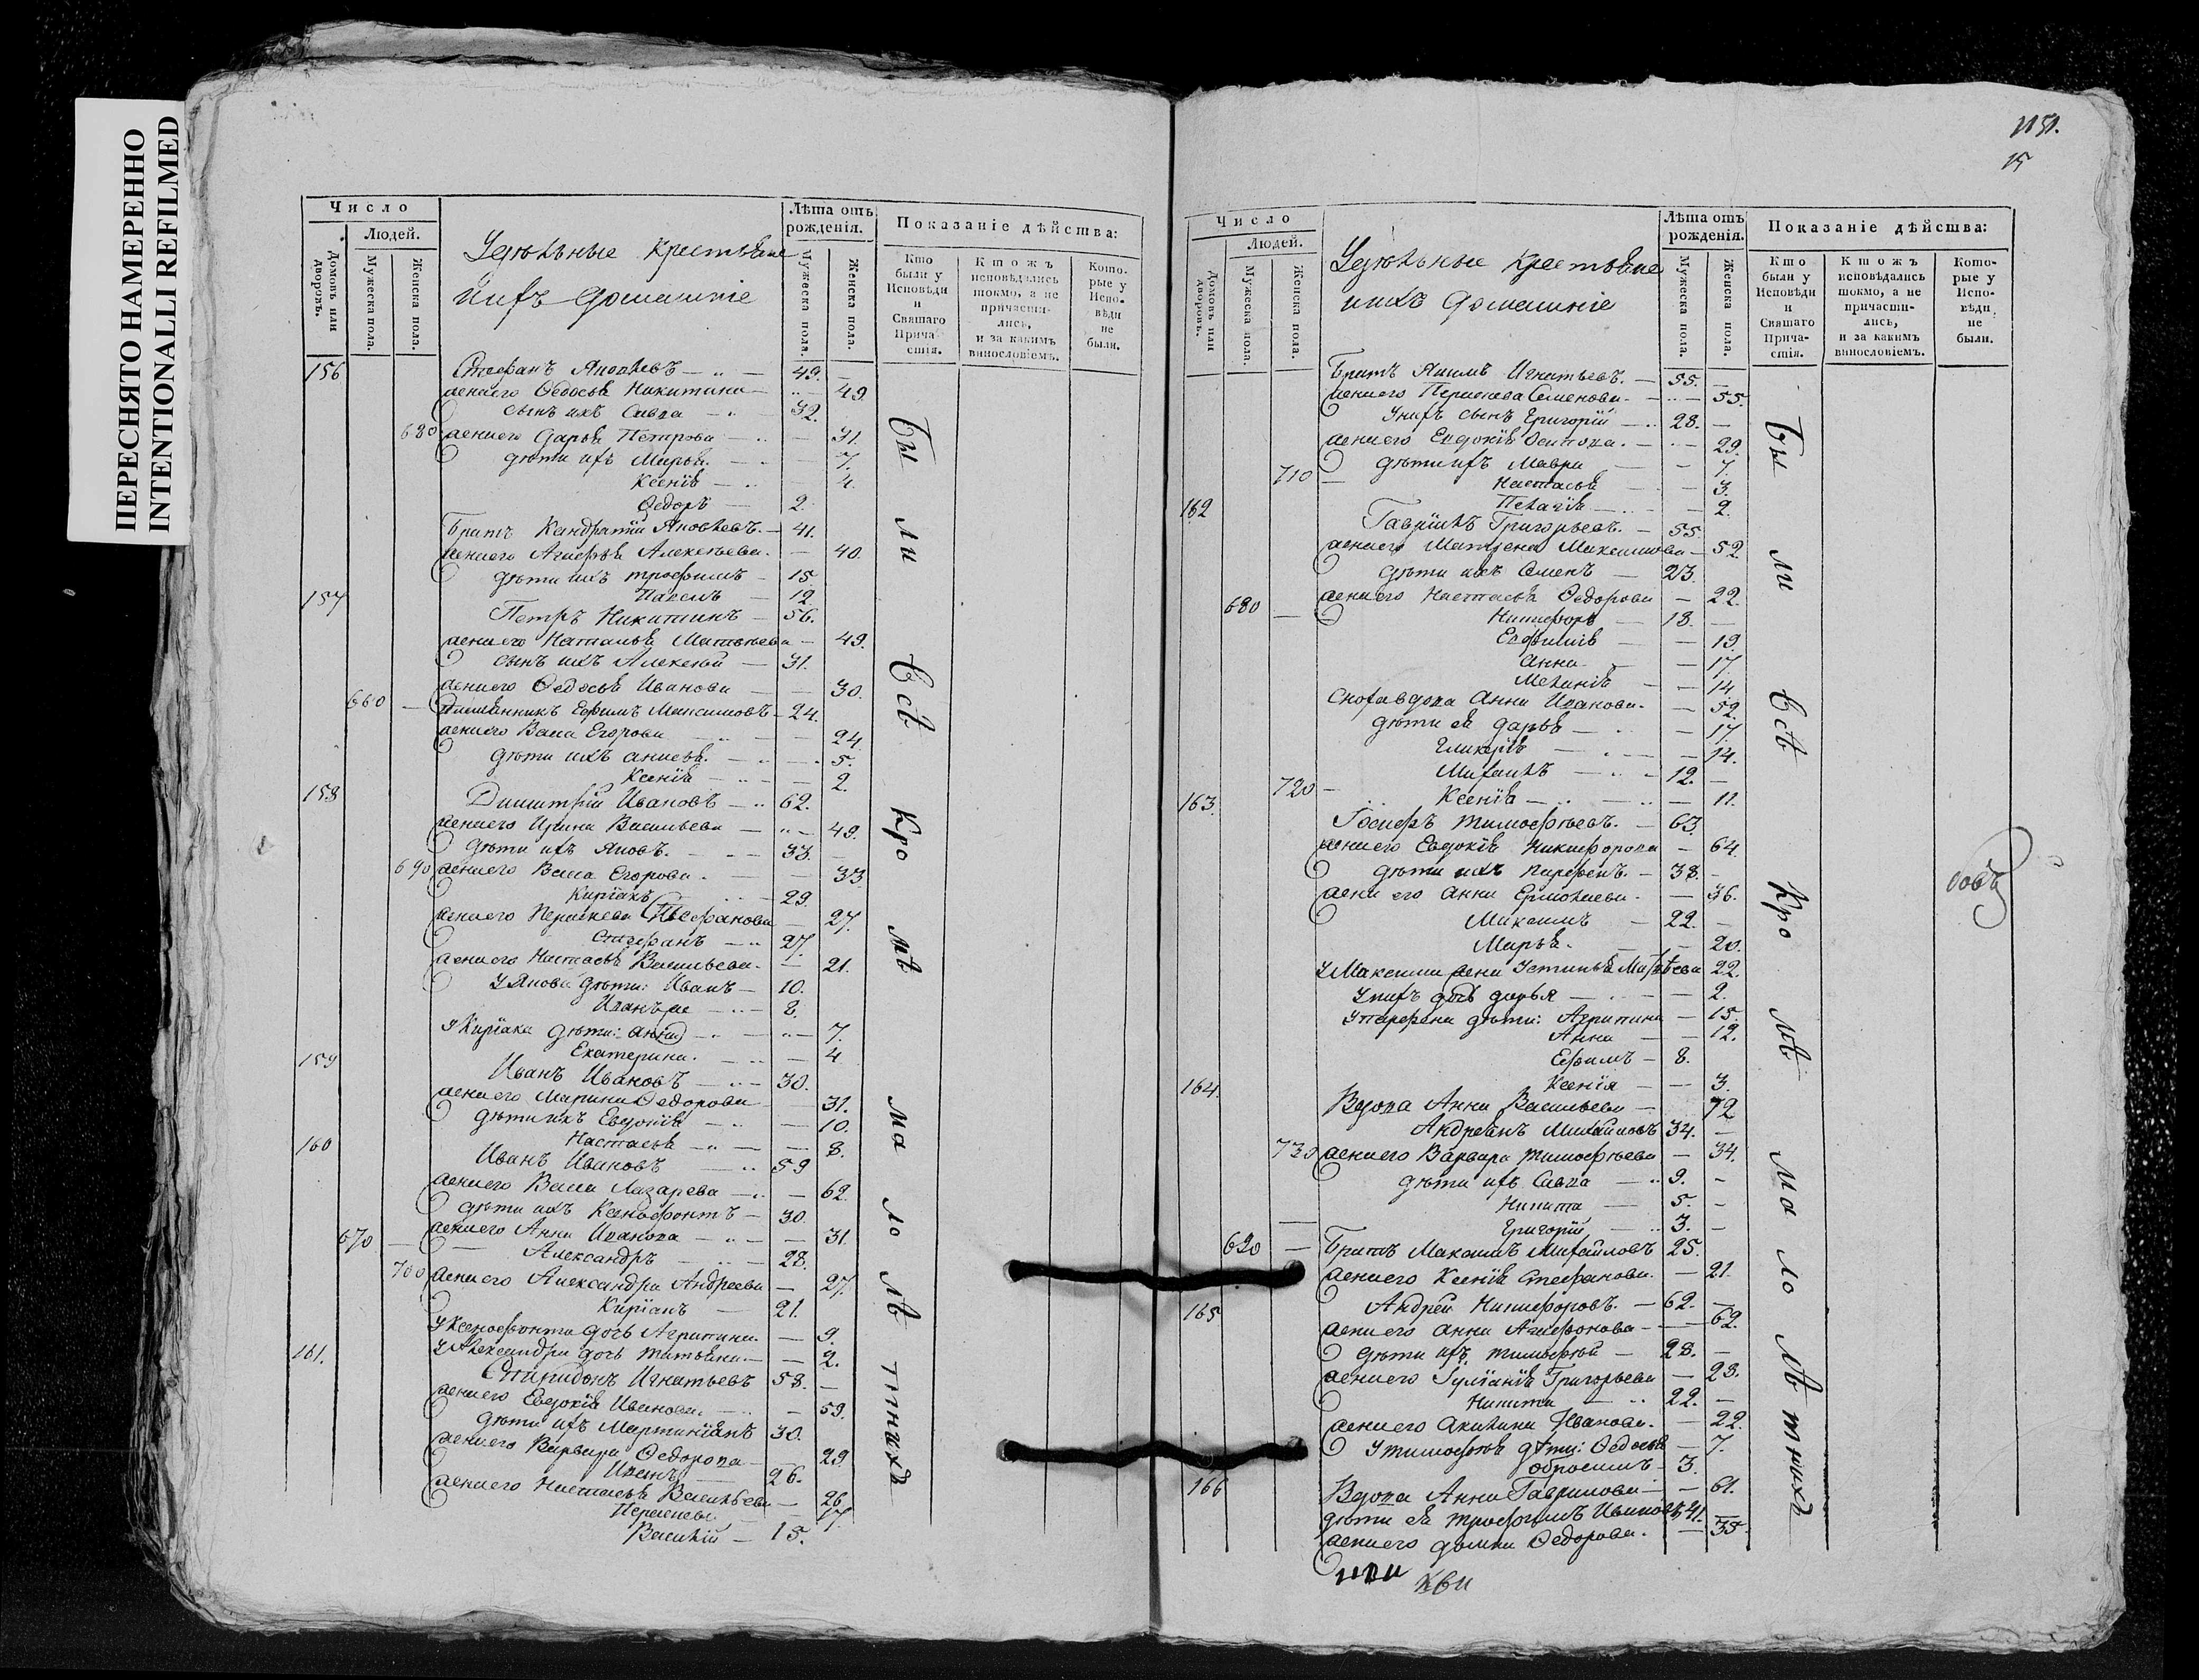 ПЕРЕСНЯТО НАМЕРЕННО
INTENTIONALLI REFILMED
Число
Людей.
Домовъ или дворовъ.
Мужеска пола.
Женска пола.
Удѣльные крестьяне
ихъ домашніе
Лѣта отъ рожденія.
Мужеска пола.
Женска пола.
Показаніе дѣйства:
Кто были у Исповѣди и Святаго Причастія.
Ктожъ исповѣдались токмо, а не причастились, и за какимъ винословіемъ.
Которые у Исповѣди не были.
156 Стефанъ Яковлевъ 49.
жена его Ѳедосья Никитина 49.
сынъ ихъ Савва 32.
680 жена его Дарья Петрова 31.
дѣти ихъ Марья 7.
Ксенія 4.
Ѳедоръ 2.
Братъ Кандратій Яковлевъ 41.
жена его Агафья Алексѣева 40.
дѣти ихъ Трофимъ 15.
Павелъ 12.
157 Петръ Никитинъ 56.
жена его Наталья Матвѣева 49.
сынъ ихъ Алексѣй 31.
жена его Ѳедосья Иванова 30.
660 Ефимъ Максимовъ 24.
жена его Васса Егорова 24.
дѣти ихъ Анисья 5.
Ксенія 2.
158 Димитрій Ивановъ 62.
жена его Ирина Васильева 49.
дѣти ихъ Яковъ 33.
690 жена его Васса Егорова 33.
Киріакъ 29.
жена его Параскева Стефанова 27.
Стефанъ 27.
жена его Настасья Васильева 21.
У Якова дѣти: Иванъ 10.
Иванъ же 8.
у Киріака дѣти: Анна 7.
Екатерина 4
159 Иванъ Ивановъ 30.
жена его Марина Ѳедорова 31.
дѣти ихъ Евдокія 10.
Настасья 8.
160 Иванъ Ивановъ 59
жена его Васса Лазарева 62.
дѣти ихъ Ксенофонтъ 30.
жена его Анна Иванова 31.
670 Александръ 28.
700 жена его Александра Андреева 27.
Киріанъ 21.
У Ксенофонта дочь Агрипина 9.
у Александра дочь Татьяна 2.
161. Спиридонъ Игнатьевъ 58.
жена его Евдокія Иванова 59.
дѣти ихъ Мартиніанъ 30.
жена его Варвара Ѳедорова 29
Иванъ 26.
жена его Настасья Васильева 26
Параскева 17.
Василій 15.
Бы ли всѣ кро мѣ ма ло лѣ тнихъ
1151.
15
Число
Людей.
Домовъ или дворовъ.
Мужеска пола.
Женска пола.
Удѣльные крестьяне
ихъ домашніе
Лѣта отъ рожденія.
Мужеска пола.
Женска пола.
Показаніе дѣйства:
Кто были у Исповѣди и Святаго Причастія.
Ктожъ исповѣдались токмо, а не причастились, и за какимъ винословіемъ.
Которые у Исповѣди не были.
Братъ Якимъ Игнатьевъ 55.
жена его Параскева Семенова 55.
У нихъ сынъ Григорій 28.
жена его Евдокія Осипова 29.
дѣти ихъ Мавра 7.
710 Настасья 3.
Пелагія 2.
162 Гавріилъ Григорьевъ 55.
жена его Матрена Максимова 52.
дѣти ихъ Семенъ 23.
жена его Настасья Ѳедорова 22.
680 Никифоръ 18.
Евфимія 19.
Анна 17.
Меланія 14
сноха вдова Анна Иванова 52.
дѣти ея Дарья 17.
Гликерія 14.
Михаилъ 12.
720 Ксенія 11.
163. Іосифъ Тимофѣевъ 63.
жена его Евдокія Никифорова 64.
дѣти ихъ Парфенъ 38.
жена его Анна Ермолаева 36.
Максимъ 22.
Марья 20.
У Максима жена Устинья Матвѣева 22.
У нихъ дочь Дарья 2.
У Парфена дѣти: Агрипина 15.
Анна 12.
Ефимъ 8.
Ксенія 3.
164. Вдова Анна Васильева 72
Андреянъ Михайловъ 34.
730 жена его Варвара Тимофѣева 34.
дѣти ихъ Савва 9.
Никита 5.
Григорій 3.
690 Братъ Максимъ Михайловъ 25.
жена его Ксенія Стефанова 21.
165 Андрей Никифоровъ 62.
жена его Анна Агафонова 62.
дѣти ихъ Тимофѣй 28.
жена его Іуліанія Григорьева 28.
Никита 22.
жена его Акилина Иванова 22.
У Тимофѣя дѣти: Ѳедосья 7.
Обросимъ 3.
166 Вдова Анна Гаврилова 61.
дѣти ея Трофимъ Ивановъ 41.
жена его Домна Ѳедорова 35.
Бы ли всѣ кро мѣ ма ло лѣ тнихъ